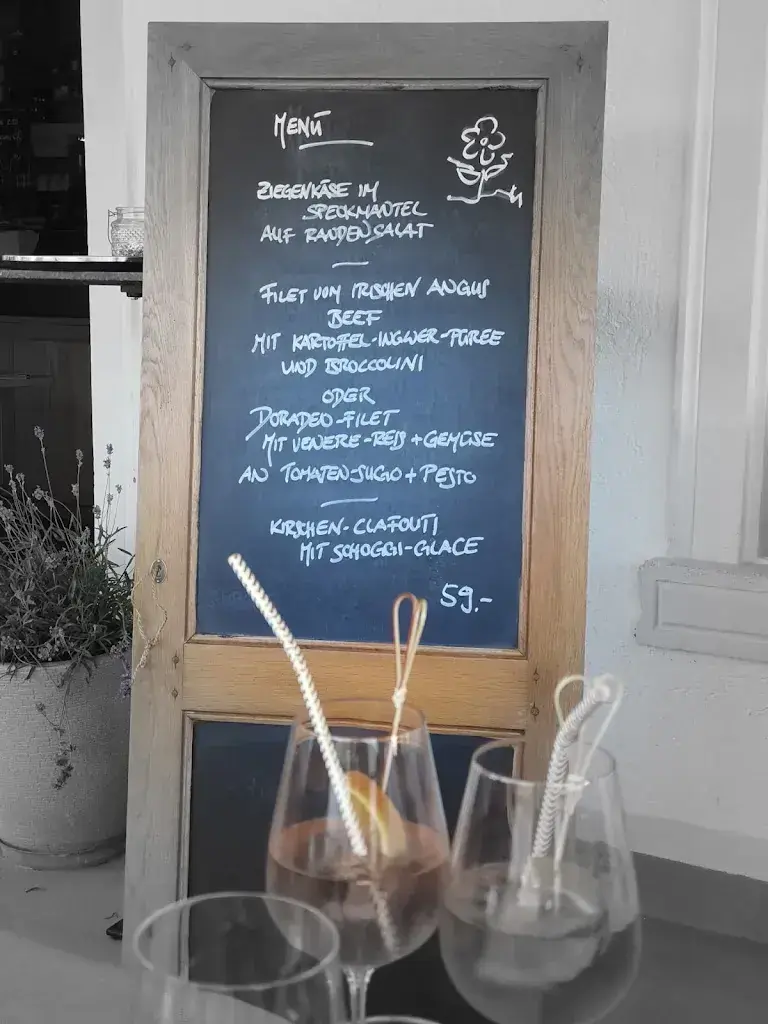 MENÜ
ZIEGENKÄSE IM
SPECKMANTEL
AUF RANDENSALAT
FILET VOM IRISCHEN ANGUS
BEEF
MIT KARTOFFEL-INGWER-PÜREE
UND BROCCOLINI
ODER
DORADEN-FILET
MIT VENERE-REIS + GEMÜSE
AN TOMATENSUGO + PESTO
KIRSCHEN-CLAFOUTI
MIT SCHOGGI-GLACE
59.-